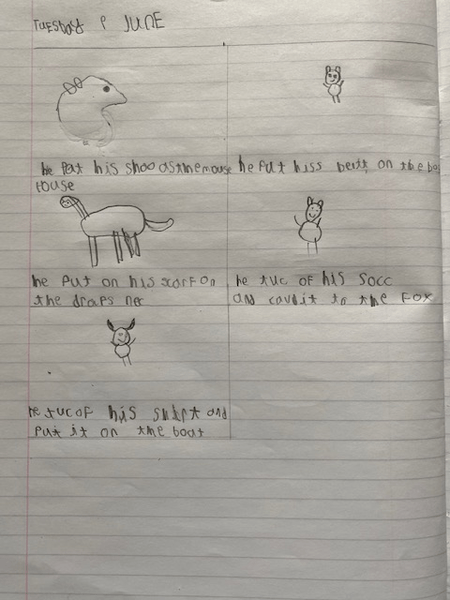 TUESDAY 9 JUNE
he Pat his shoo as the mouse
touse
he Put hiss beltt on the bot
he put on his scorf on
the draps nec
he tuc of his socc
and cavd it to the Fox
he tuc of his shirt and
Put it on the boat